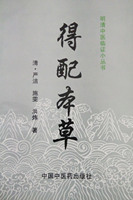 明清中医临证小丛书
得配本草
清·严洁 施雯 洪炜 著
中国中医药出版社